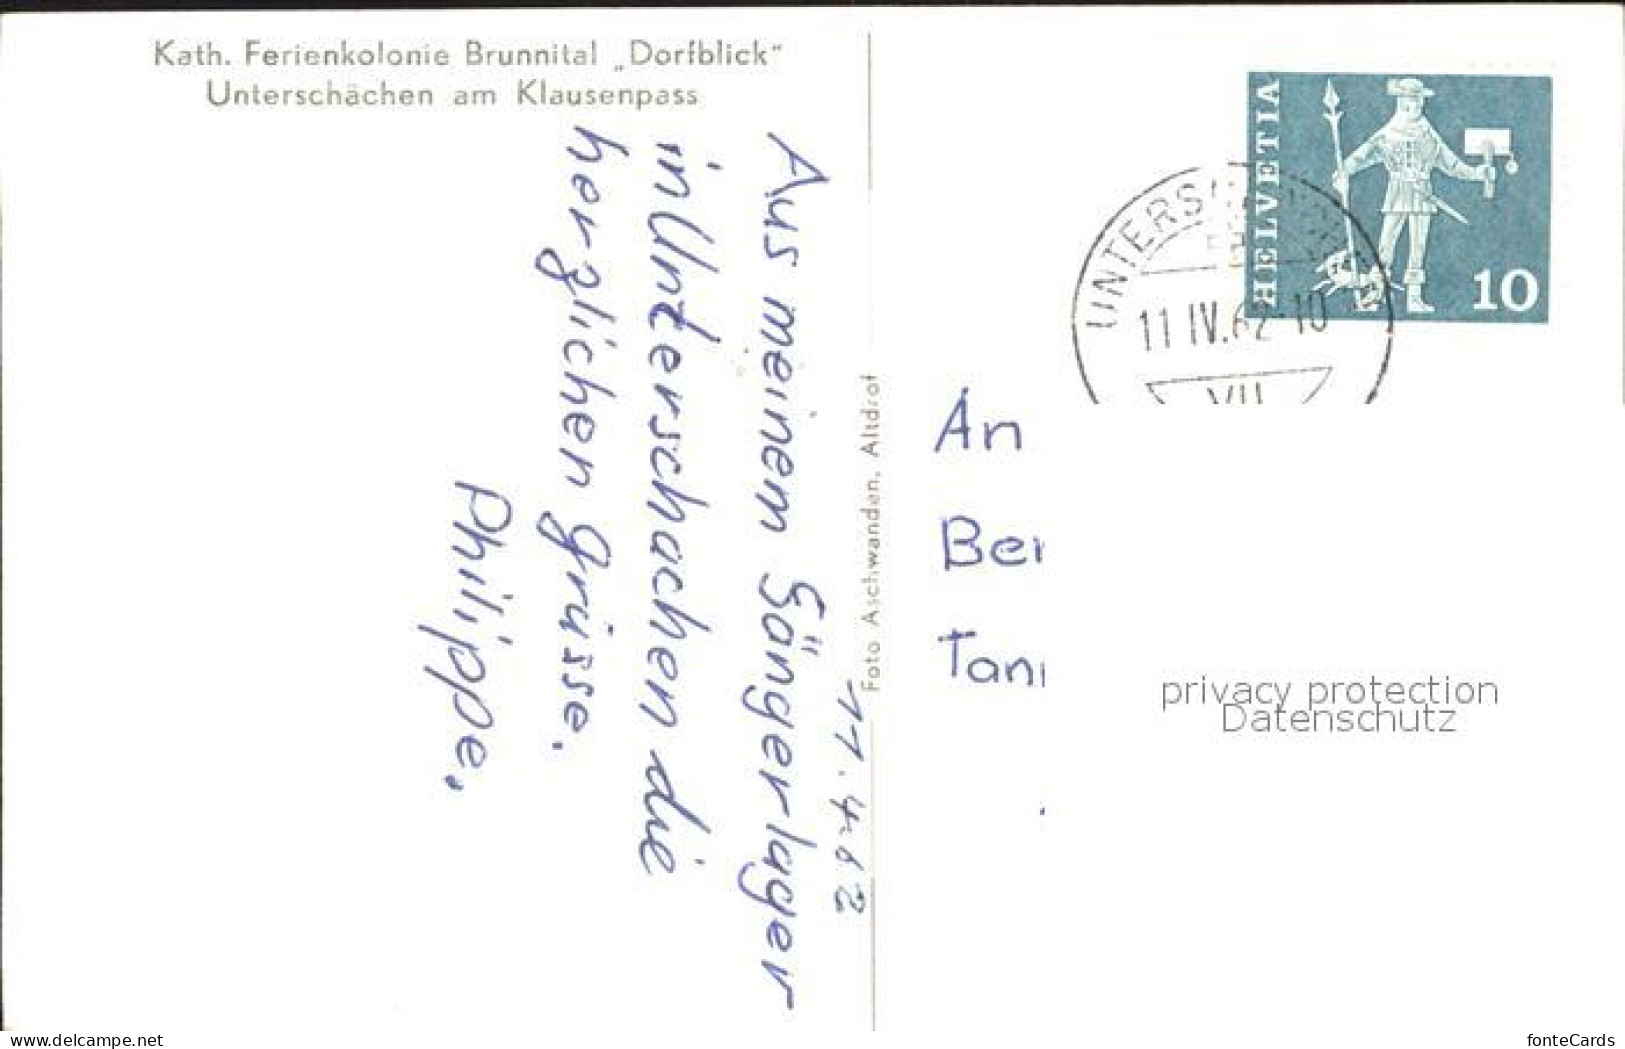 Kath. Ferienkolonie Brunnital „Dorfblick“
Unterschächen am Klausenpass
11.4.62
Aus meinem Sängerlager
in Unterschachen die
herzlichen Grüsse.
Philippe.
Foto Aschwanden, Altdorf
HELVETIA
10
11 IV.62-10
VII
An
Tann
privacy protection
Datenschutz
www.delcampe.net
fonteCards